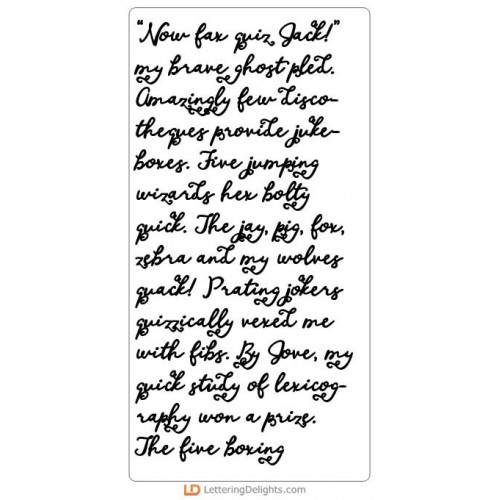 “Now fax quiz Jack!”
my brave ghost pled.
Amazingly few disco-
theques provide juke-
boxes. Five jumping
wizards hex bolty
quick. The jay, pig, fox,
zebra and my wolves
quack! Prating jokers
quizzically vexed me
with fibs. By Jove, my
quick study of lexicog-
raphy won a prize.
The five boxing
LD LetteringDelights.com